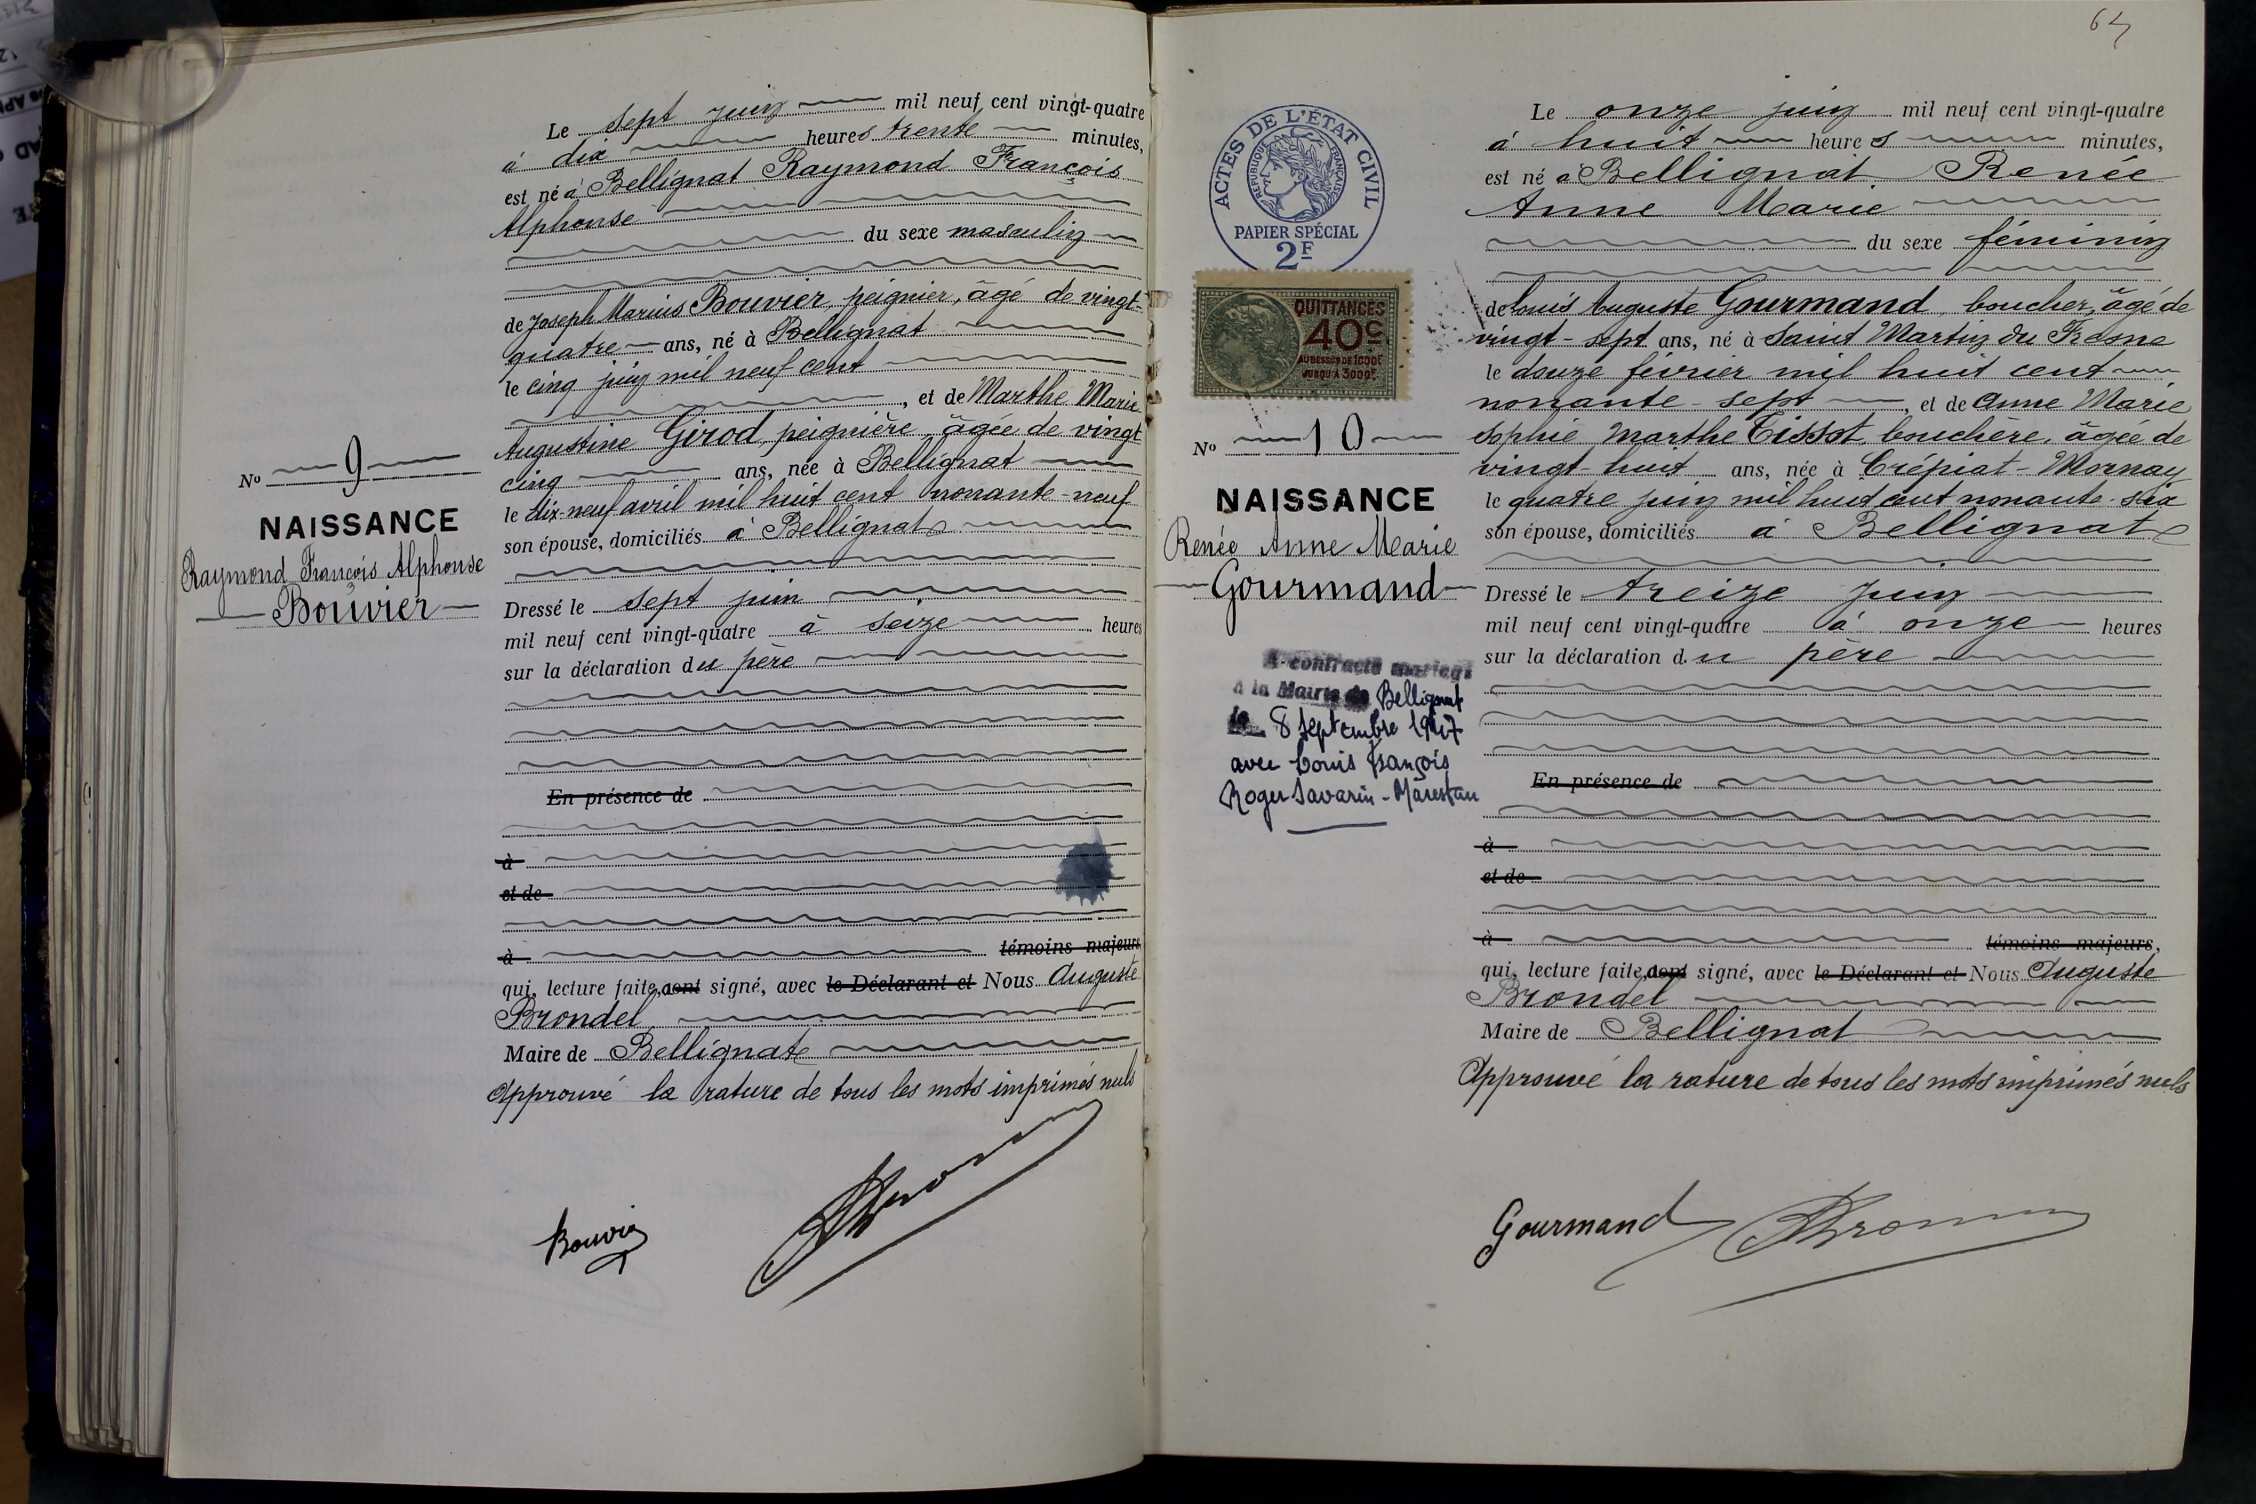 Le sept juin mil neuf cent vingt-quatre
à dix heures trente minutes,
est né à Bellignat Raymond François
Alphonse
du sexe masculin
de Joseph Marius Bouvier, peignier, âgé de vingt-
quatre ans, né à Bellignat
le cinq juin mil neuf cent
, et de Marthe Marie
Augustine Girod, peignière, âgée de vingt
cinq ans, née à Bellignat
le dix-neuf avril mil huit cent nonante-neuf
son épouse, domiciliés à Bellignat
Dressé le sept juin
mil neuf cent vingt-quatre à seize heures
sur la déclaration du père
En présence de
à
et de
à témoins majeurs
qui, lecture faite, ont signé, avec le Déclarant et Nous Auguste
Brondel
Maire de Bellignat
Approuvé la rature de tous les mots imprimés nuls
Bouvier
No 9
NAISSANCE
Raymond François Alphonse
Bouvier
64
ACTES DE L'ÉTAT CIVIL
RÉPUBLIQUE FRANÇAISE
PAPIER SPÉCIAL
2F
QUITTANCES
40c
AU DESSUS DE 1000F
JUSQU'À 3000F
No 10
NAISSANCE
Renée Anne Marie
Gourmand
A contracté mariage
à la Mairie de Bellignat
le 8 septembre 1947
avec Louis François
Roger Savarin-Marestan
Le onze juin mil neuf cent vingt-quatre
à huit heures minutes,
est né à Bellignat Renée
Anne Marie
du sexe féminin
de Louis Auguste Gourmand, boucher, âgé de
vingt-sept ans, né à Saint Martin du Fresne
le douze février mil huit cent
nonante-sept, et de Anne Marie
Sophie Marthe Tissot, bouchère, âgée de
vingt-huit ans, née à Crépiat-Mornay
le quatre juin mil huit cent nonante-six
son épouse, domiciliés à Bellignat
Dressé le treize juin
mil neuf cent vingt-quatre à onze heures
sur la déclaration du père
En présence de
à
et de
à témoins majeurs,
qui, lecture faite, ont signé, avec le Déclarant et Nous Auguste
Brondel
Maire de Bellignat
Approuvé la rature de tous les mots imprimés nuls
Gourmand